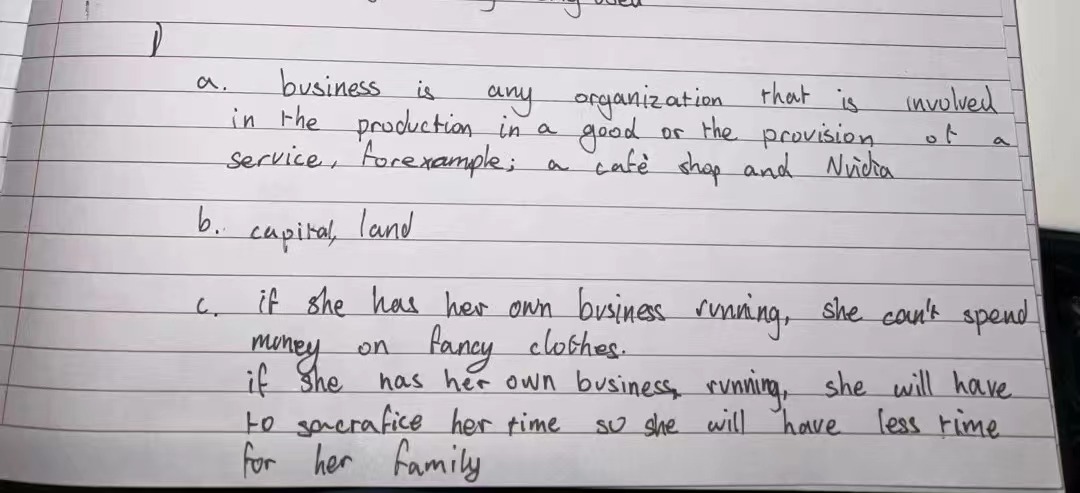 1)
a. business is any organization that is involved
in the production in a good or the provision of a
service, forexample; a cafè shop and Nvidia
b. capital, land
c. if she has her own business running, she can't spend
money on fancy clothes.
if she has her own business, running, she will have
to sacrafice her time so she will have less time
for her family